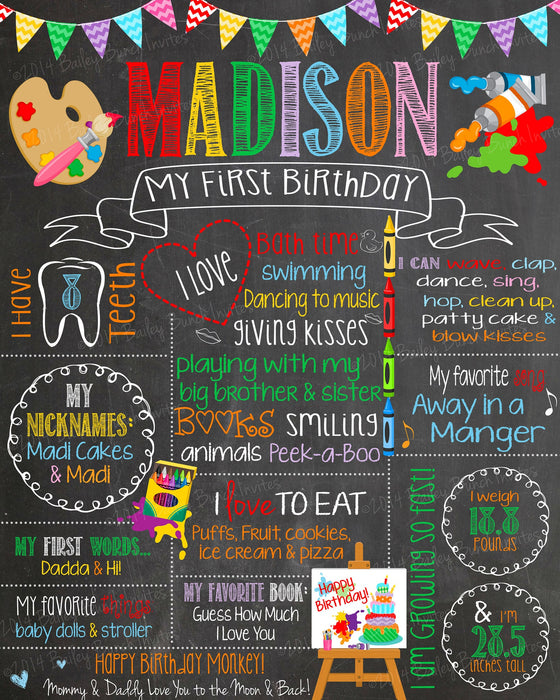 MADISON
My First Birthday
I Have
8
Teeth
I LOVE
Bath time
swimming
Dancing to music
giving kisses
playing with my
big brother & sister
BOOKS smiling
animals Peek-a-Boo
I CAN wave, clap,
dance, sing,
hop, clean up,
patty cake &
blow kisses
My favorite song
Away in a
Manger
MY
NICKNAMES:
Madi Cakes
& Madi
I love TO EAT
Puffs, Fruit, cookies,
ice cream & pizza
MY FIRST WORDS...
Dadda & Hi!
My favorite things
baby dolls & stroller
MY FAVORITE BOOK:
Guess How Much
I Love You
Happy
Birthday!
I am GROWING SO FAST!
I weigh
18.8
POUNDS
& I'm
28.5
inches tall
HAPPY BIRTHDAY MONKEY!
Mommy & Daddy Love You to the Moon & Back!
©2014 Bailey Bunch Invites